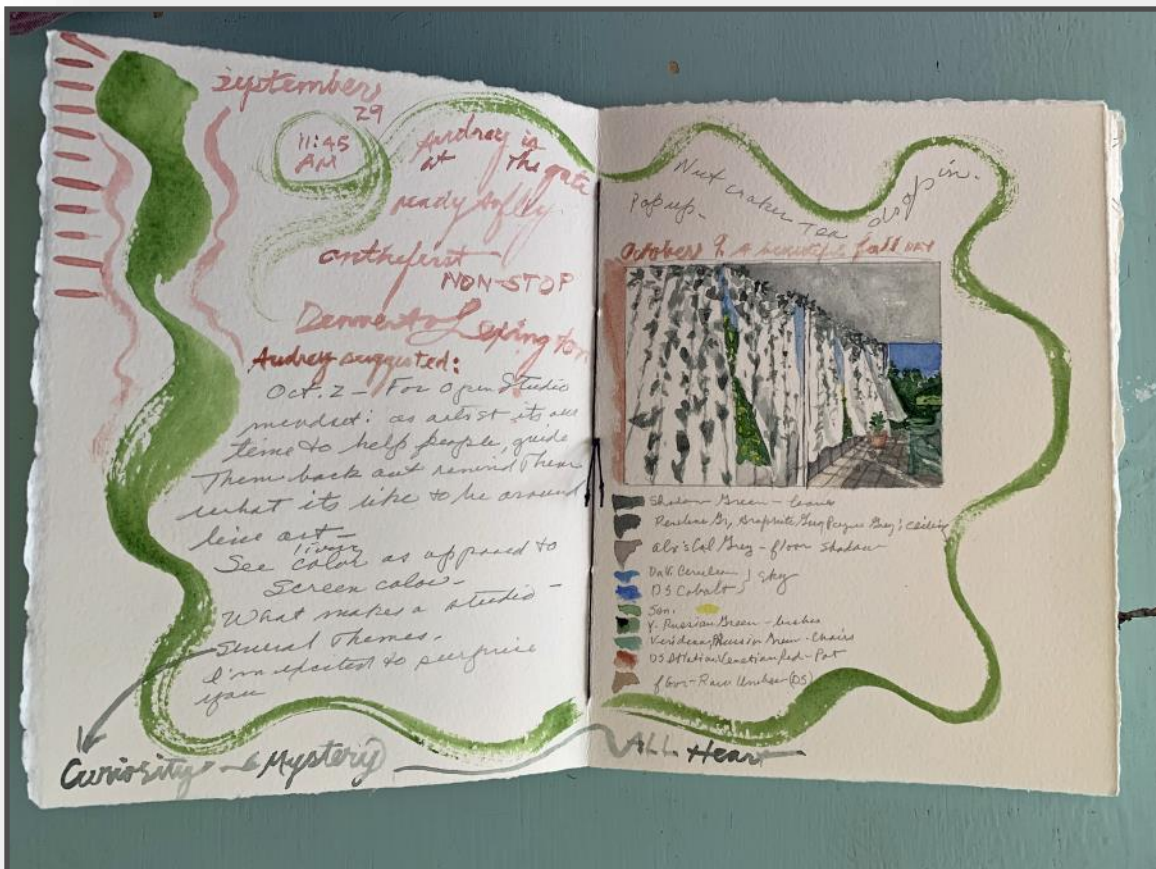 September
29
11:45
AM
Audrey is
at the gate
ready to fly
on the first
NON-STOP
Denver to Lexington
Audrey suggested:
Oct. 2 – For Open Studio
mindset: as artist its our
time to help people, guide
them back out remind them
what its like to be around
live art –
See living color as opposed to
screen color –
What makes a studio –
Sensual Themes.
I'm excited to surprise
you
Curiosity & Mystery
ALL Heart
Nut craker Tea drop in.
Pop up –
October 9. A beautiful fall DAY
Shadow Green – leaves
Grey, Paynes Grey; Ceiling
Grey – floor shadow
DaV. Cerulean } sky
DS Cobalt
Sen.
Y. Russian Green – bushes
Russian Green – Chairs
Venetian Red – Pot
floor – Raw Umber (DS)